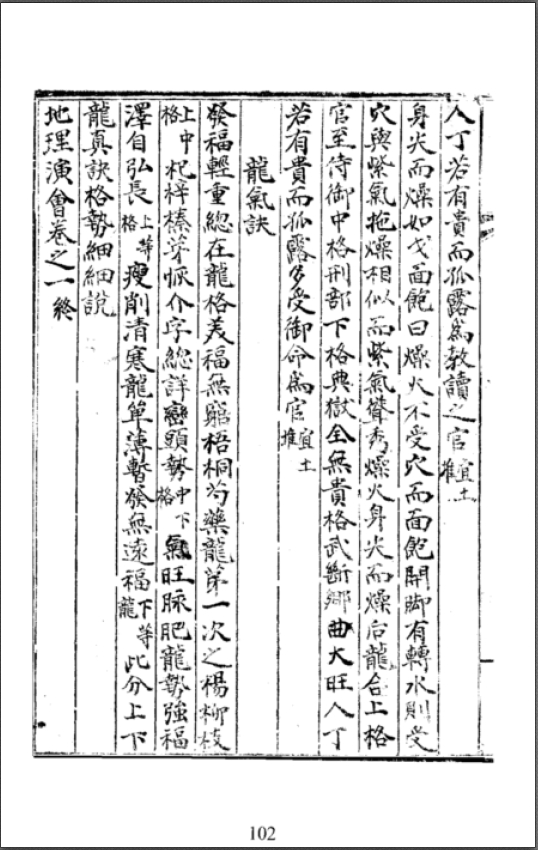 人丁若有貴而孤露為教讀之官宜土堆
身尖而燥如戈面飽曰燥火不受穴而面飽開脚有轉水則受
穴與紫氣抱燥相似而紫氣聳秀燥火身尖而燥后龍合上格
官至侍御中格刑部下格典獄全無貴格武斷鄉曲大旺人丁
若有貴而孤露多受御命為官宜土堆
龍氣訣
發福輕重總在龍格美福無貽梧桐芍藥龍第一次之楊柳枝
上中格杞梓榛茅派介字總詳巒頭勢中下格氣旺脉肥龍勢強福
澤自弘長上等格瘦削清寒龍單薄暫發無遠福下等龍此分上下
龍真訣格勢細細說
地理演會卷之一終
102